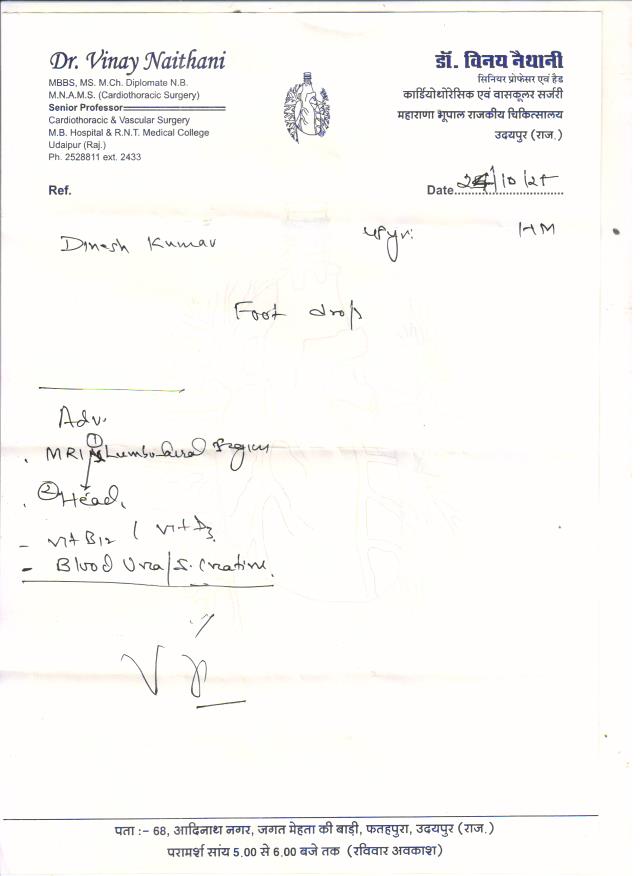 Dr. Vinay Naithani
MBBS, MS. M.Ch. Diplomate N.B.
M.N.A.M.S. (Cardiothoracic Surgery)
Senior Professor
Cardiothoracic & Vascular Surgery
M.B. Hospital & R.N.T. Medical College
Udaipur (Raj.)
Ph. 2528811 ext. 2433
डॉ. विनय नैथानी
सिनियर प्रोफेसर एवं हैड
कार्डियोथोरेसिक एवं वासकूलर सर्जरी
महाराणा भूपाल राजकीय चिकित्सालय
उदयपुर (राज.)
Ref.
Date /10/25
Dinesh Kumar yr.
Foot drop
Adv.
. MRI ① Lumbo Region
. ② Head.
- Vit B12 ( Vit D3
- Blood Urea/S. Creatine.
पता :– 68, आदिनाथ नगर, जगत मेहता की बाड़ी, फतहपुरा, उदयपुर (राज.)
परामर्श सांय 5.00 से 6.00 बजे तक (रविवार अवकाश)